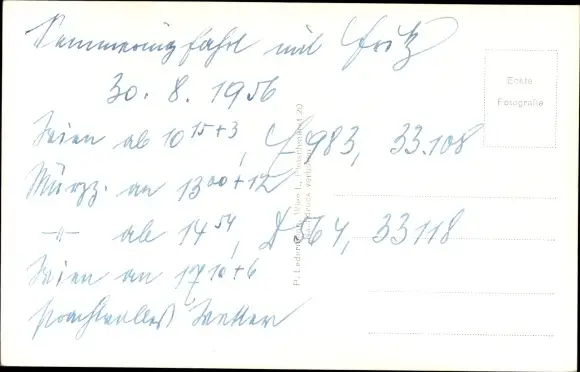 Semmeringfahrt mit Fritz
30. 8. 1956
Wien ab 10 15+3, E 983, 33.108
Mürzz. an 13 00+12
-"- ab 14 54, D 64, 33118
Wien an 17 10+6
prachtvolles Wetter
Echte
Fotografie
P. Ledermann, Wien I., Fleischmarkt 20